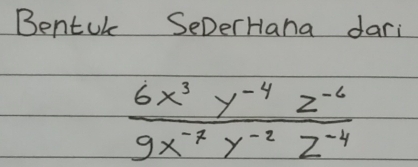 Bentuk SeDerHana dari
6x³ y⁻⁴ z⁻⁶
9x⁻⁷ y⁻² z⁻⁴